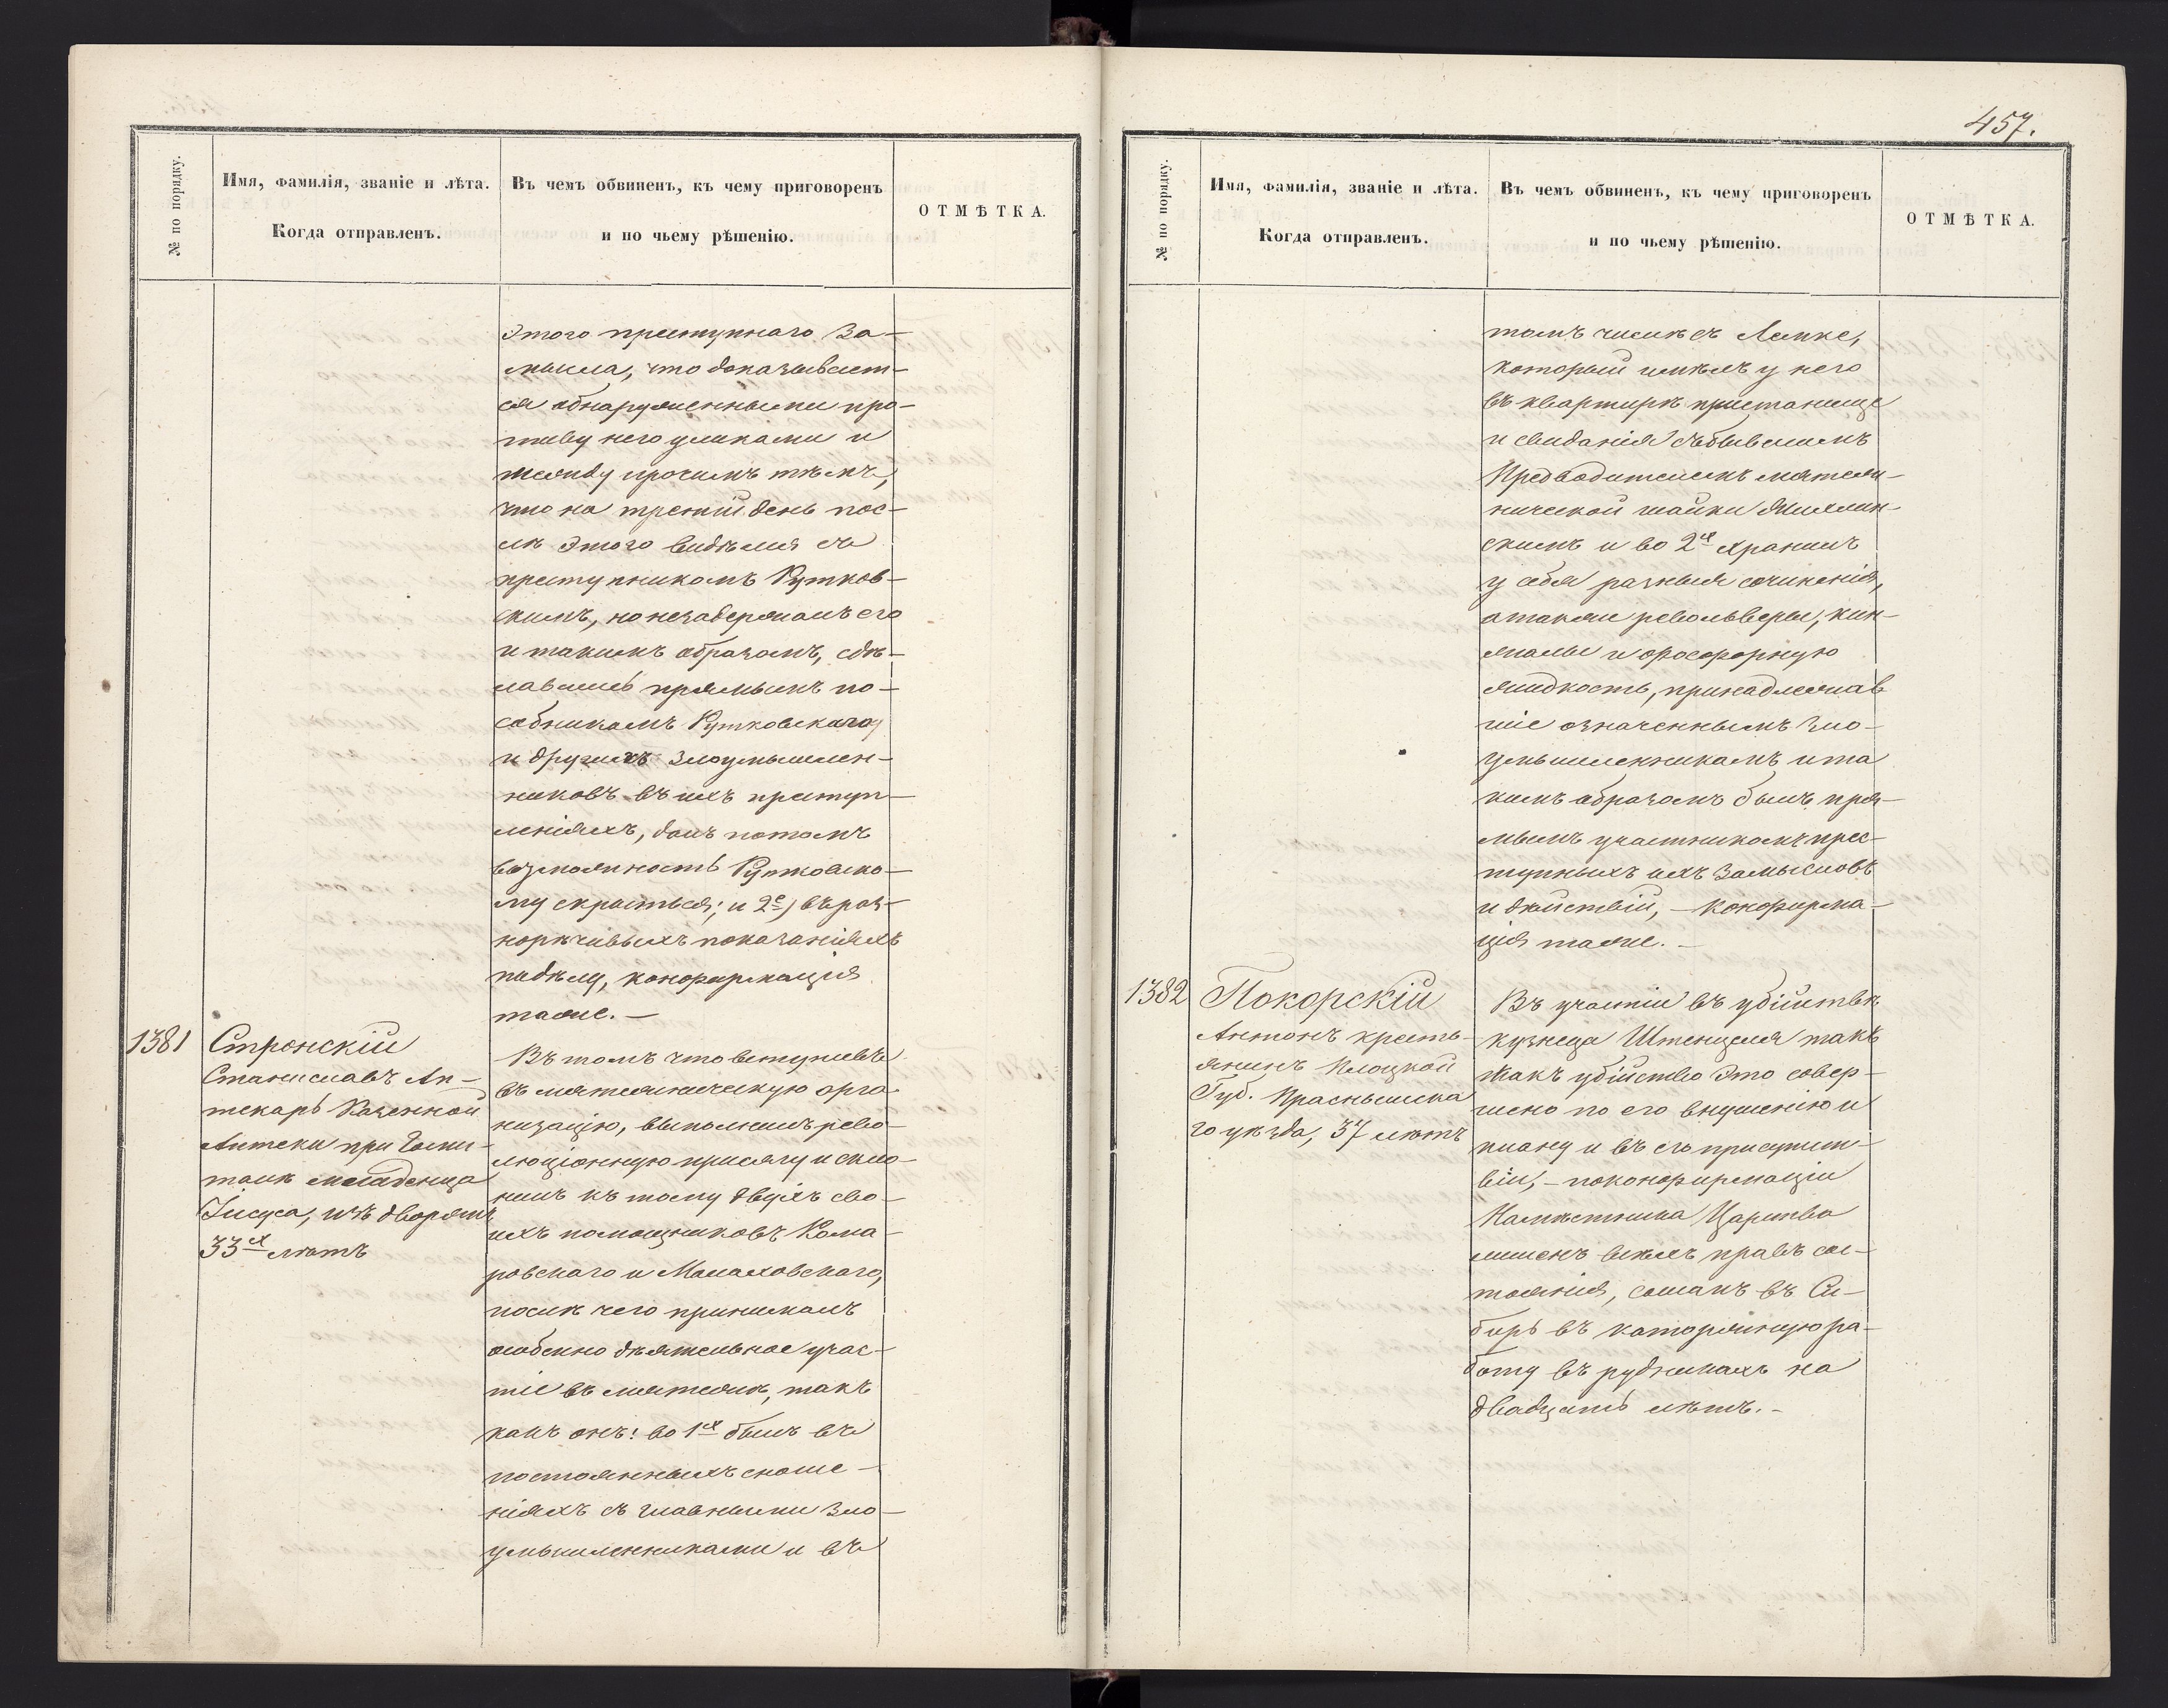 457.
№ по порядку.
Имя, фамилія, званіе и лѣта.
Когда отправленъ.
Въ чемъ обвиненъ, къ чему приговоренъ
и по чьему рѣшенію.
ОТМѢТКА.
этого преступнаго за-
мысла, что доказывает-
ся обнаруженными про-
тиву него уликами и
между прочимъ тѣмъ,
что на третій день пос-
лѣ этого видѣлся съ
преступникомъ Рутков-
скимъ, но незадержалъ его
и такимъ образомъ, сдѣ-
лавшись прямымъ по-
собникомъ Рутковскаго
и другихъ злоумышлен-
никовъ въ ихъ преступ-
леніяхъ, далъ потомъ
возможность Рутковско-
му скрыться; и 2е) въ раз-
норѣчивыхъ показаніяхъ
подѣлу, конфирмація
таже. —
1381
Стронскій
Станиславъ Ап-
текарь Казенной
Аптеки при Госпи-
талѣ младенца
Іисуса, изъ дворянъ
33х лѣтъ
Въ томъ что вступивъ
въ мятежническую орга-
низацію, выполнилъ рево-
люціонную присягу и скло-
нилъ къ тому двухъ сво-
ихъ помощниковъ Кома-
ровскаго и Малаховскаго,
послѣ чего принималъ
особенно дѣятельное учас-
тіе въ мятежѣ, такъ
какъ онъ: во 1х былъ въ
постоянныхъ сноше-
ніяхъ съ главными зло-
умышленниками и въ
№ по порядку.
Имя, фамилія, званіе и лѣта.
Когда отправленъ.
Въ чемъ обвиненъ, къ чему приговоренъ
и по чьему рѣшенію.
ОТМѢТКА.
томъ числѣ съ Лемке,
который имѣлъ у него
въ квартирѣ пристанище
и свиданія съ бывшимъ
Предводителемъ мятеж-
нической шайки
скимъ и во 2х хранилъ
у себя разныя сочиненія,
а также револьверы, кин-
жалы и фосфорную
жидкость, принадлежав
шіе означеннымъ зло-
умышленникамъ и та
кимъ образомъ былъ пря-
мымъ участникомъ прес-
тупныхъ ихъ замысловъ
и дѣйствій, — конфирма-
ція таже. —
1382
Покорскій
Антонъ кресть-
янинъ Плоцкой
Губ. Праснышска
го уѣзда, 37 лѣтъ
Въ участіи въ убійствѣ
кузнеца Штенцеля такъ
какъ убійство это совер-
шено по его внушенію и
плану и въ его присутст-
віи, — по конфирмаціи
Намѣстника Царства
лишенъ всѣхъ правъ сос-
тоянія, сосланъ въ Си-
бирь въ каторжную ра-
боту въ рудникахъ на
двадцать лѣтъ. -